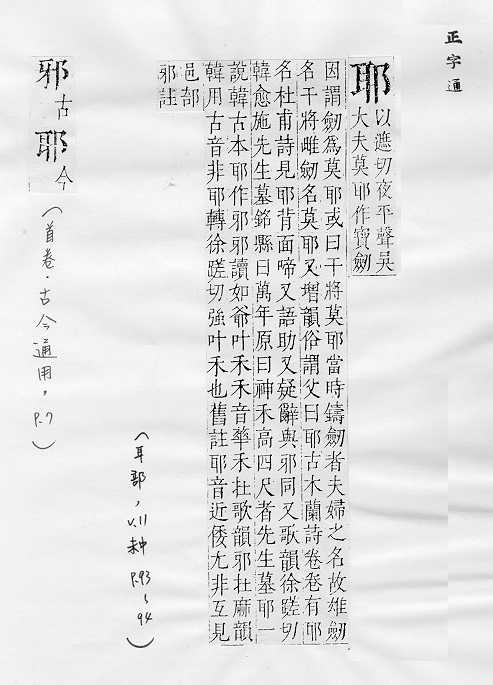 正字通
耶 以遮切夜平聲吳
大夫莫耶作寶劒
因謂劒爲莫耶或曰干將莫耶當時鑄劒者夫婦之名故雄劒
名干將雌劒名莫耶又增韻俗謂父曰耶古木蘭詩卷卷有耶
名杜甫詩見耶背面啼又語助又疑辭與邪同又歌韻徐蹉切
韓愈施先生墓銘縣曰萬年原曰神禾高四尺者先生墓耶一
說韓古本耶作邪邪讀如爺叶禾禾音華禾在歌韻邪在麻韻
韓用古音非耶轉徐蹉切強叶禾也舊註耶音近倭尢非互見
邑部
邪註
(耳部,v.11
未申
p.93~
94)
邪古耶今
(首卷·古今通用,
p.7)